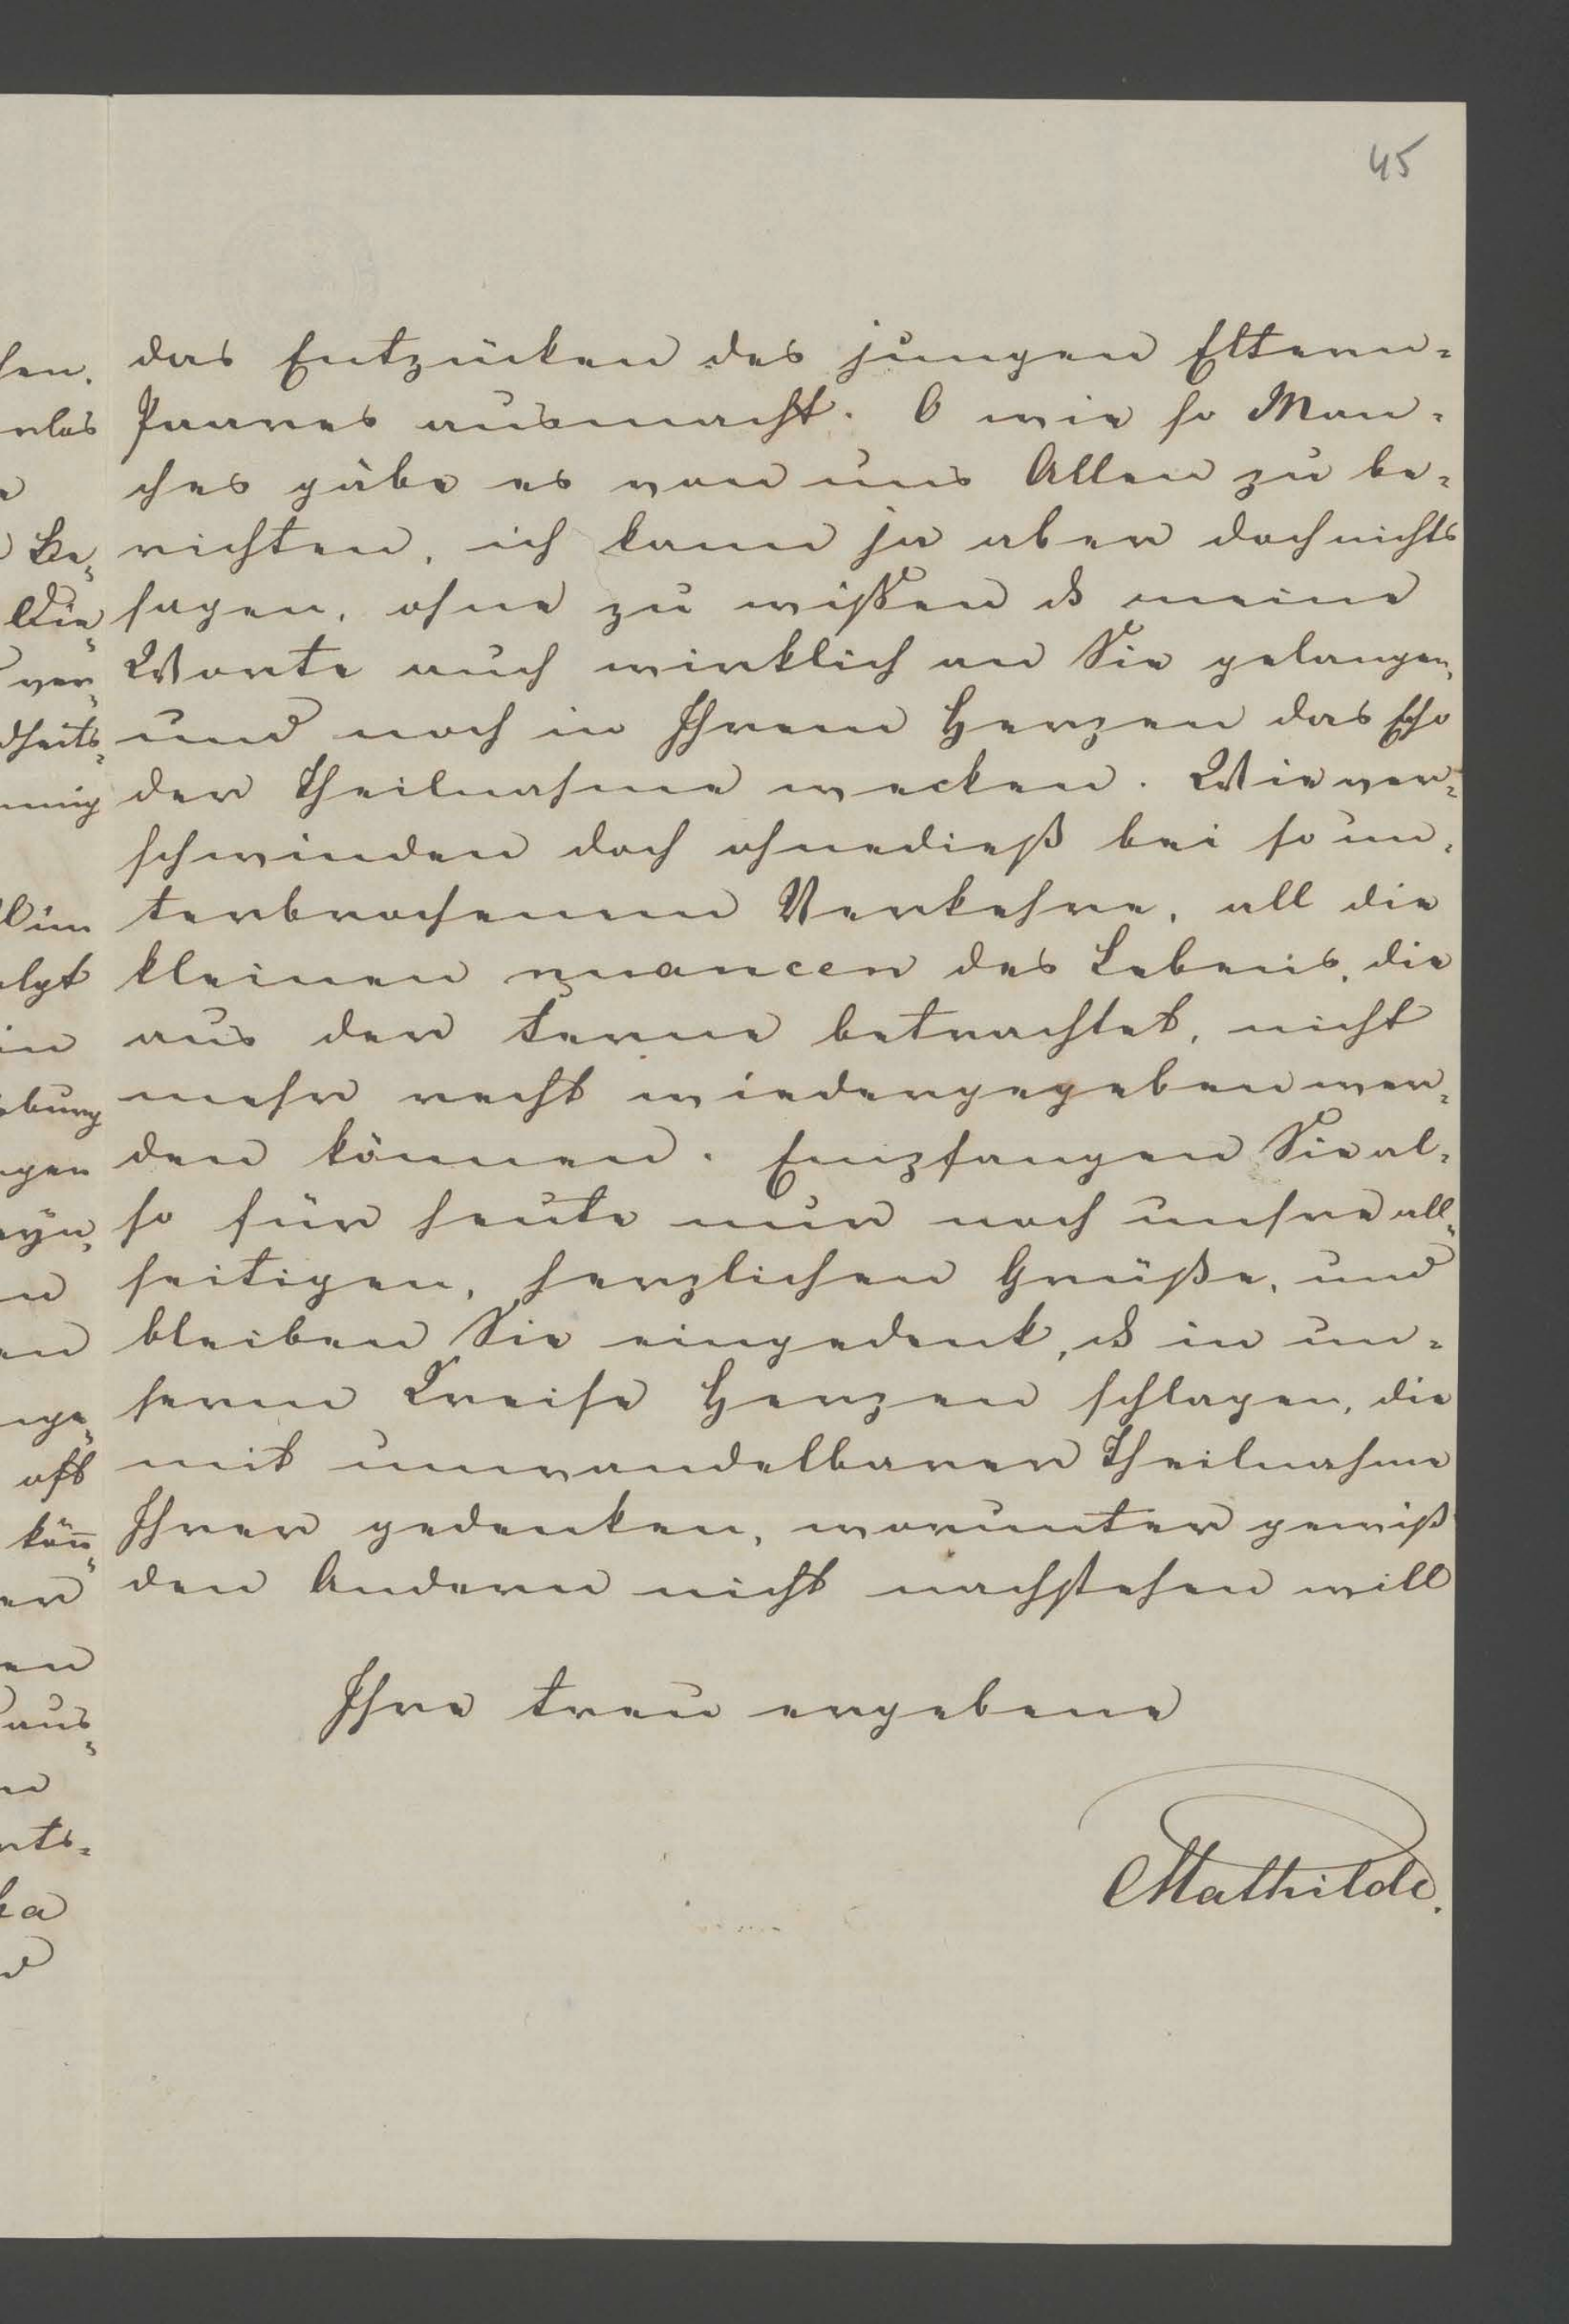 45
das Entzücken des jungen Eltern-
Paares ausmacht. O wie so Man-
ches gäbe es von uns Allen zu be-
richten, ich kann ja aber doch nichts
sagen, ohne zu wißen ds meine
Worte auch wirklich an Sie gelangen,
und noch in Ihrem Herzen das Echo
der Theilnahme wecken. Wie ver-
schwinden doch ohnedieß bei so un-
terbrochenem Verkehre, all die
kleinen nuancen des Lebens, die
aus der Ferne betrachtet, nicht
mehr recht wiedergegeben wer-
den können. Empfangen Sie al-
so für heute nur noch unsre all-
seitigen, herzlichen Grüße, und
bleiben Sie eingedenk, ds in un-
serm Kreise Herzen schlagen, die
mit unwandelbarer Theilnahme
Ihrer gedenken, worunter gewiß
den Andern nicht nachstehen will
Ihre treu ergebene
Mathilde.